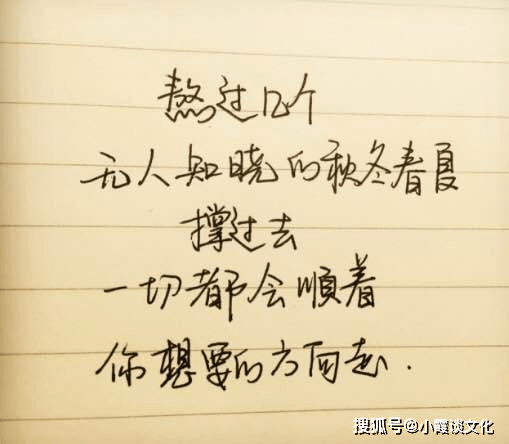 熬过几个
无人知晓的秋冬春夏
撑过去
一切都会顺着
你想要的方向走.
搜狐号@小霞谈文化